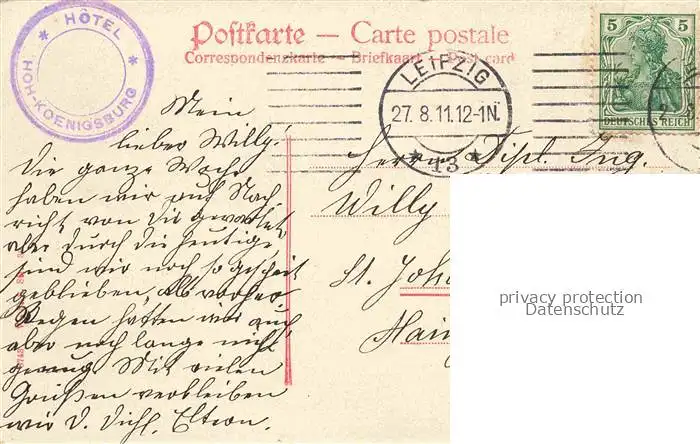 HÔTEL
HOH-KOENIGSBURG
Postkarte — Carte postale
Correspondenzkarte — Briefkaart — Post card
LEIPZIG
27.8.11.12-1N.
* 13 *
5 5
DEUTSCHES REICH
Mein
lieber Willy!
Die ganze Woche
haben wir auf Nach-
richt von Dir gewartet
aber durch die heutige,
sind wir noch so gescheit
geblieben, als vorher.
Regen hatten wir auch
aber noch lange nicht
genug. Mit vielen
Grüßen verbleiben
wir D. Dichl. Eltern.
Herrn Dipl. Ing.
Willy
St. Joh
privacy protection
Datenschutz